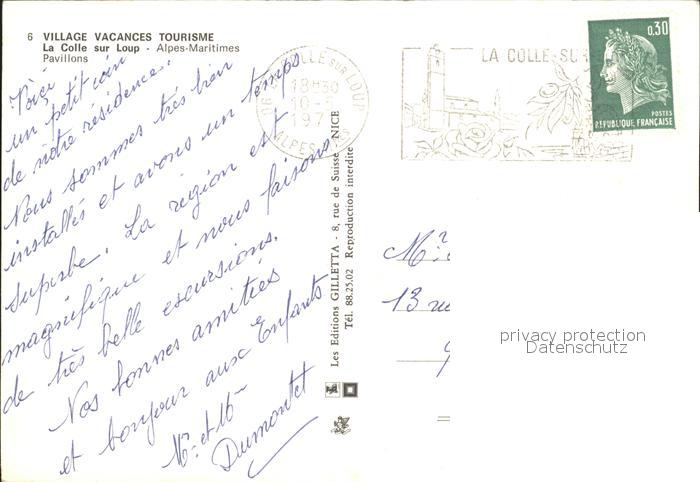 6 VILLAGE VACANCES TOURISME
La Colle sur Loup - Alpes-Maritimes
Pavillons
Voici
un petit coin
de notre résidence.
Nous sommes très bien
installés et avons un temps
superbe. La région est
magnifique et nous faisons
de très belle excursions.
Nos bonnes amitiés
et bonjour aux Enfants
Mr et Me
Dumontet
Les Editions GILLETTA - 8, rue de Suisse - NICE
Tél. 88.25.02 Reproduction interdite
LA COLLE SUR LOUP
18H30
10-5
197
ALPES
LA COLLE-SU
0,30
POSTES
REPUBLIQUE FRANÇAISE
Mr
13 rue
privacy protection
Datenschutz